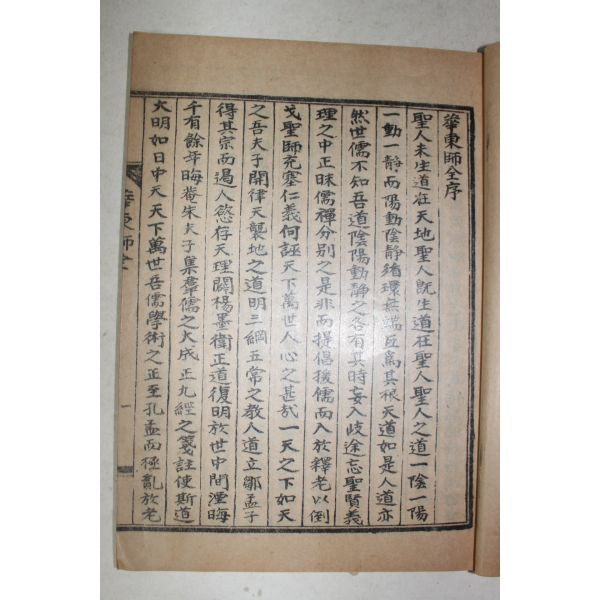 華東師全序
聖人未生道在天地聖人旣生道在聖人聖人之道一陰一陽
一動一静而陽動陰静循環無端互爲其根天道如是人道亦
然世儒不知吾道陰陽動静之各有其時妄入歧途忘聖賢義
理之中正昧儒禪分别之是非而提倡援儒而入於釋老以倒
戈聖師充塞仁義何誣天下萬世人心之甚哉一天之下如天
之吾夫子開律天襲地之道明三綱五常之敎人道立鄒孟子
得其宗而遏人慾存天理闢楊墨衛正道復明於世中間湮晦
千有餘年晦菴朱夫子集羣儒之大成正九經之箋註使斯道
大明如日中天天下萬世吾儒學術之正至孔孟而極亂於老
華東師全
一